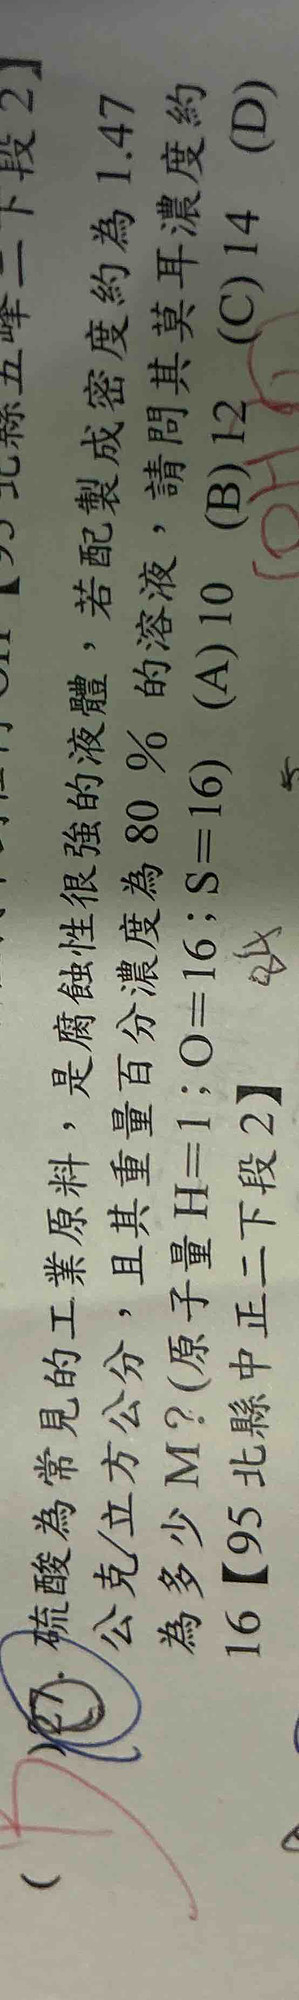 北縣五峰二下段2】
( )27.硫酸為常見的工業原料，是腐蝕性很強的液體，若配製成密度約為 1.47
公克/立方公分，且其重量百分濃度為 80 %的溶液，請問其莫耳濃度約
為多少 M？(原子量 H＝1；O＝16；S＝16) (A) 10 (B) 12 (C) 14 (D)
16【95 北縣中正二下段 2】